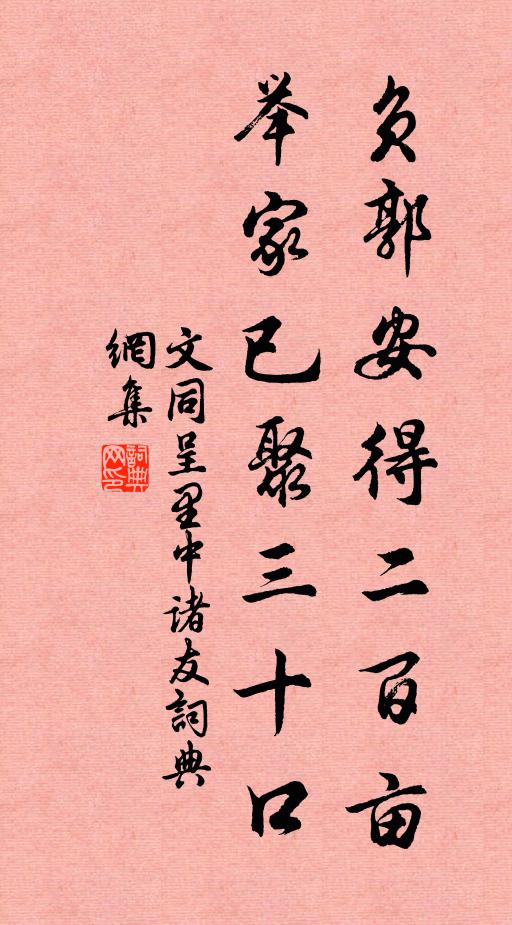 负郭安得二百亩
举家已聚三十口
文同呈里中诸友詞典
網集
詞典网印